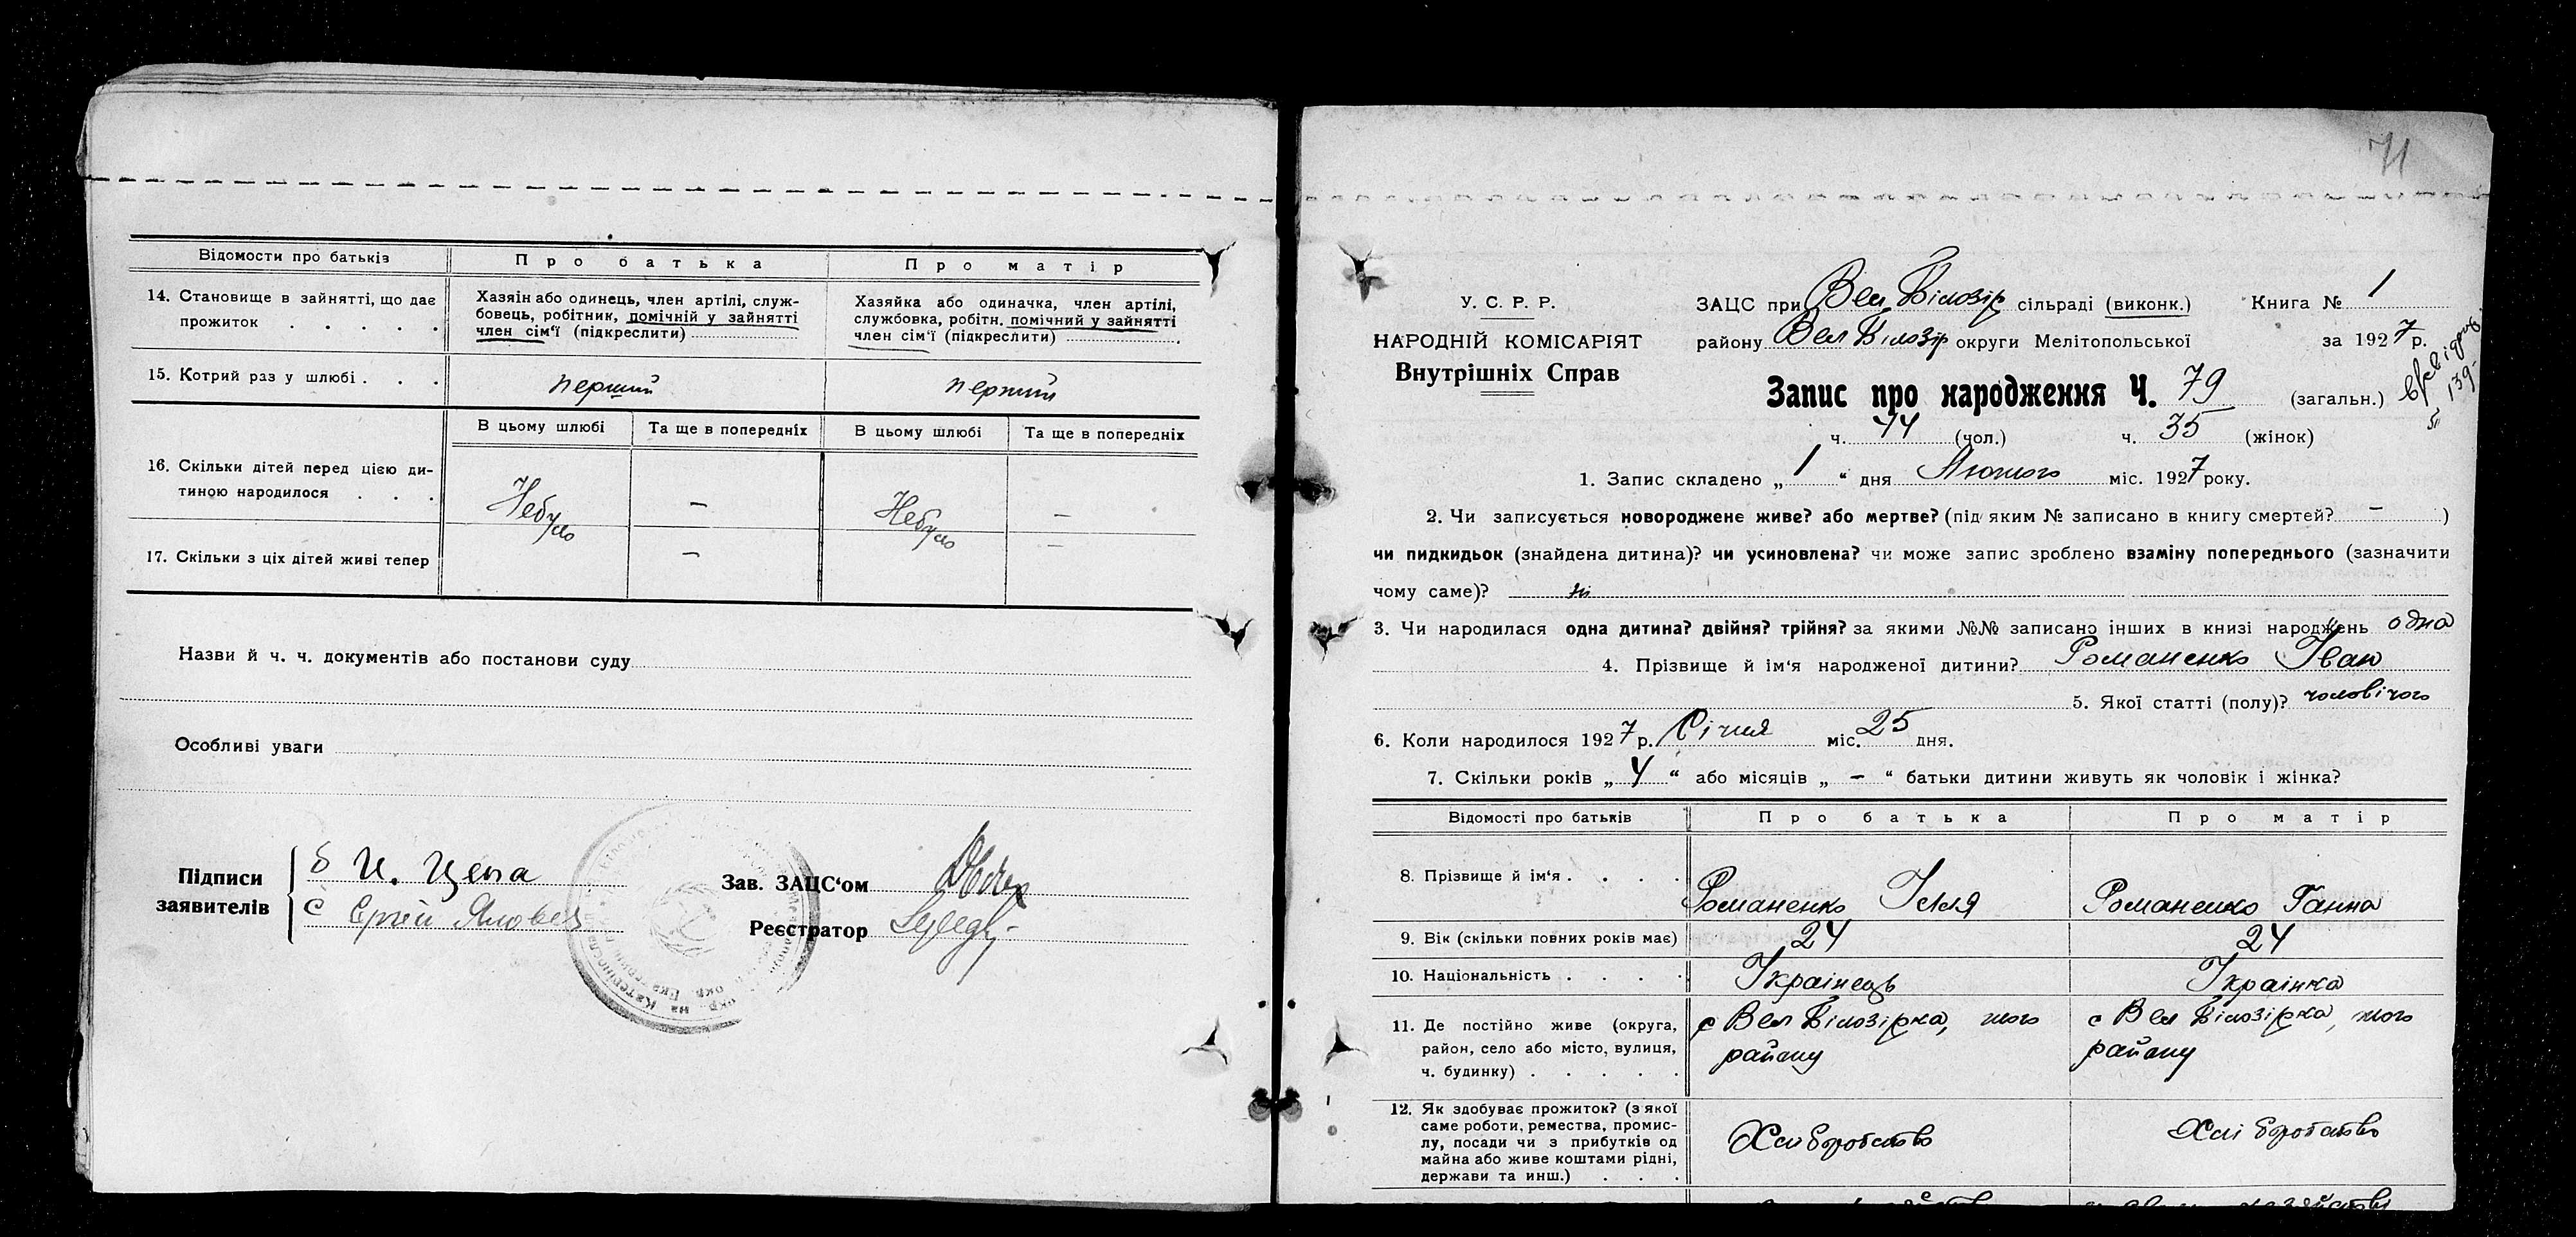 Відомости про батьків
Про батька
Про матір
14. Становище в зайнятті, що дає
прожиток . . . . .
Хазяін або одинець, член артілі, служ-
бовець, робітник, помічній у зайнятті
член сім‘ї (підкреслити)
Хазяйка або одиначка, член артілі,
службовка, робітн. помічний у зайнятті
член сім‘ї (підкреслити)
15. Котрий раз у шлюбі . . .
перший
перший
В цьому шлюбі
Та ще в попередніх
В цьому шлюбі
Та ще в попередніх
16. Скільки дітей перед цією ди-
тиною народилося . . .
Небуло
—
Небуло
—
17. Скільки з ціх дітей живі тепер
—
—
Назви й ч. ч. документів або постанови суду
Особливі уваги
Підписи
заявителів
Зав. ЗАЦС‘ом
Реєстратор
71
У. С. Р. Р.
НАРОДНІЙ КОМІСАРІЯТ
Внутрішніх Справ
ЗАЦС при Вел Білозір сільраді (виконк.)
Книга № 1
району Вел Білозір округи Мелітопольської
за 1927 р.
Запис про народження Ч. 79 (загальн.)
ч. 44 (чол.) ч. 35 (жінок)
1. Запис складено „ 1 “ дня Лютого міс. 1927 року.
2. Чи записується новороджене живе? або мертве? (під яким № записано в книгу смертей? — )
чи пидкидьок (знайдена дитина)? чи усиновлена? чи може запис зроблено взаміну попереднього (зазначити
чому саме)? ні
3. Чи народилася одна дитина? двійня? трійня? за якими №№ записано інших в книзі народжень одна
4. Прізвище й ім‘я народженої дитини? Романенко Іван
5. Якої статті (полу)? чоловічого
6. Коли народилося 1927 р. Січня міс. 25 дня.
7. Скільки років „ 4 “ або місяців „ — “ батьки дитини живуть як чоловік і жінка?
Відомості про батьків
Про батька
Про матір
8. Прізвище й ім‘я . . . .
Романенко Ілля
Романенко Ганна
9. Вік (скільки повних років має)
24
24
10. Національність . . . .
Українець
Українка
11. Де постійно живе (округа,
район, село або місто, вулиця,
ч. будинку) . . . . .
с Вел Білозірка, того
району
с Вел Білозірка, того
району
12. Як здобуває прожиток? (з якої
саме роботи, ремества, промис-
лу, посади чи з прибутків од
майна або живе коштами рідні,
держави та инш.) . . .
Хліборобство
Хліборобство